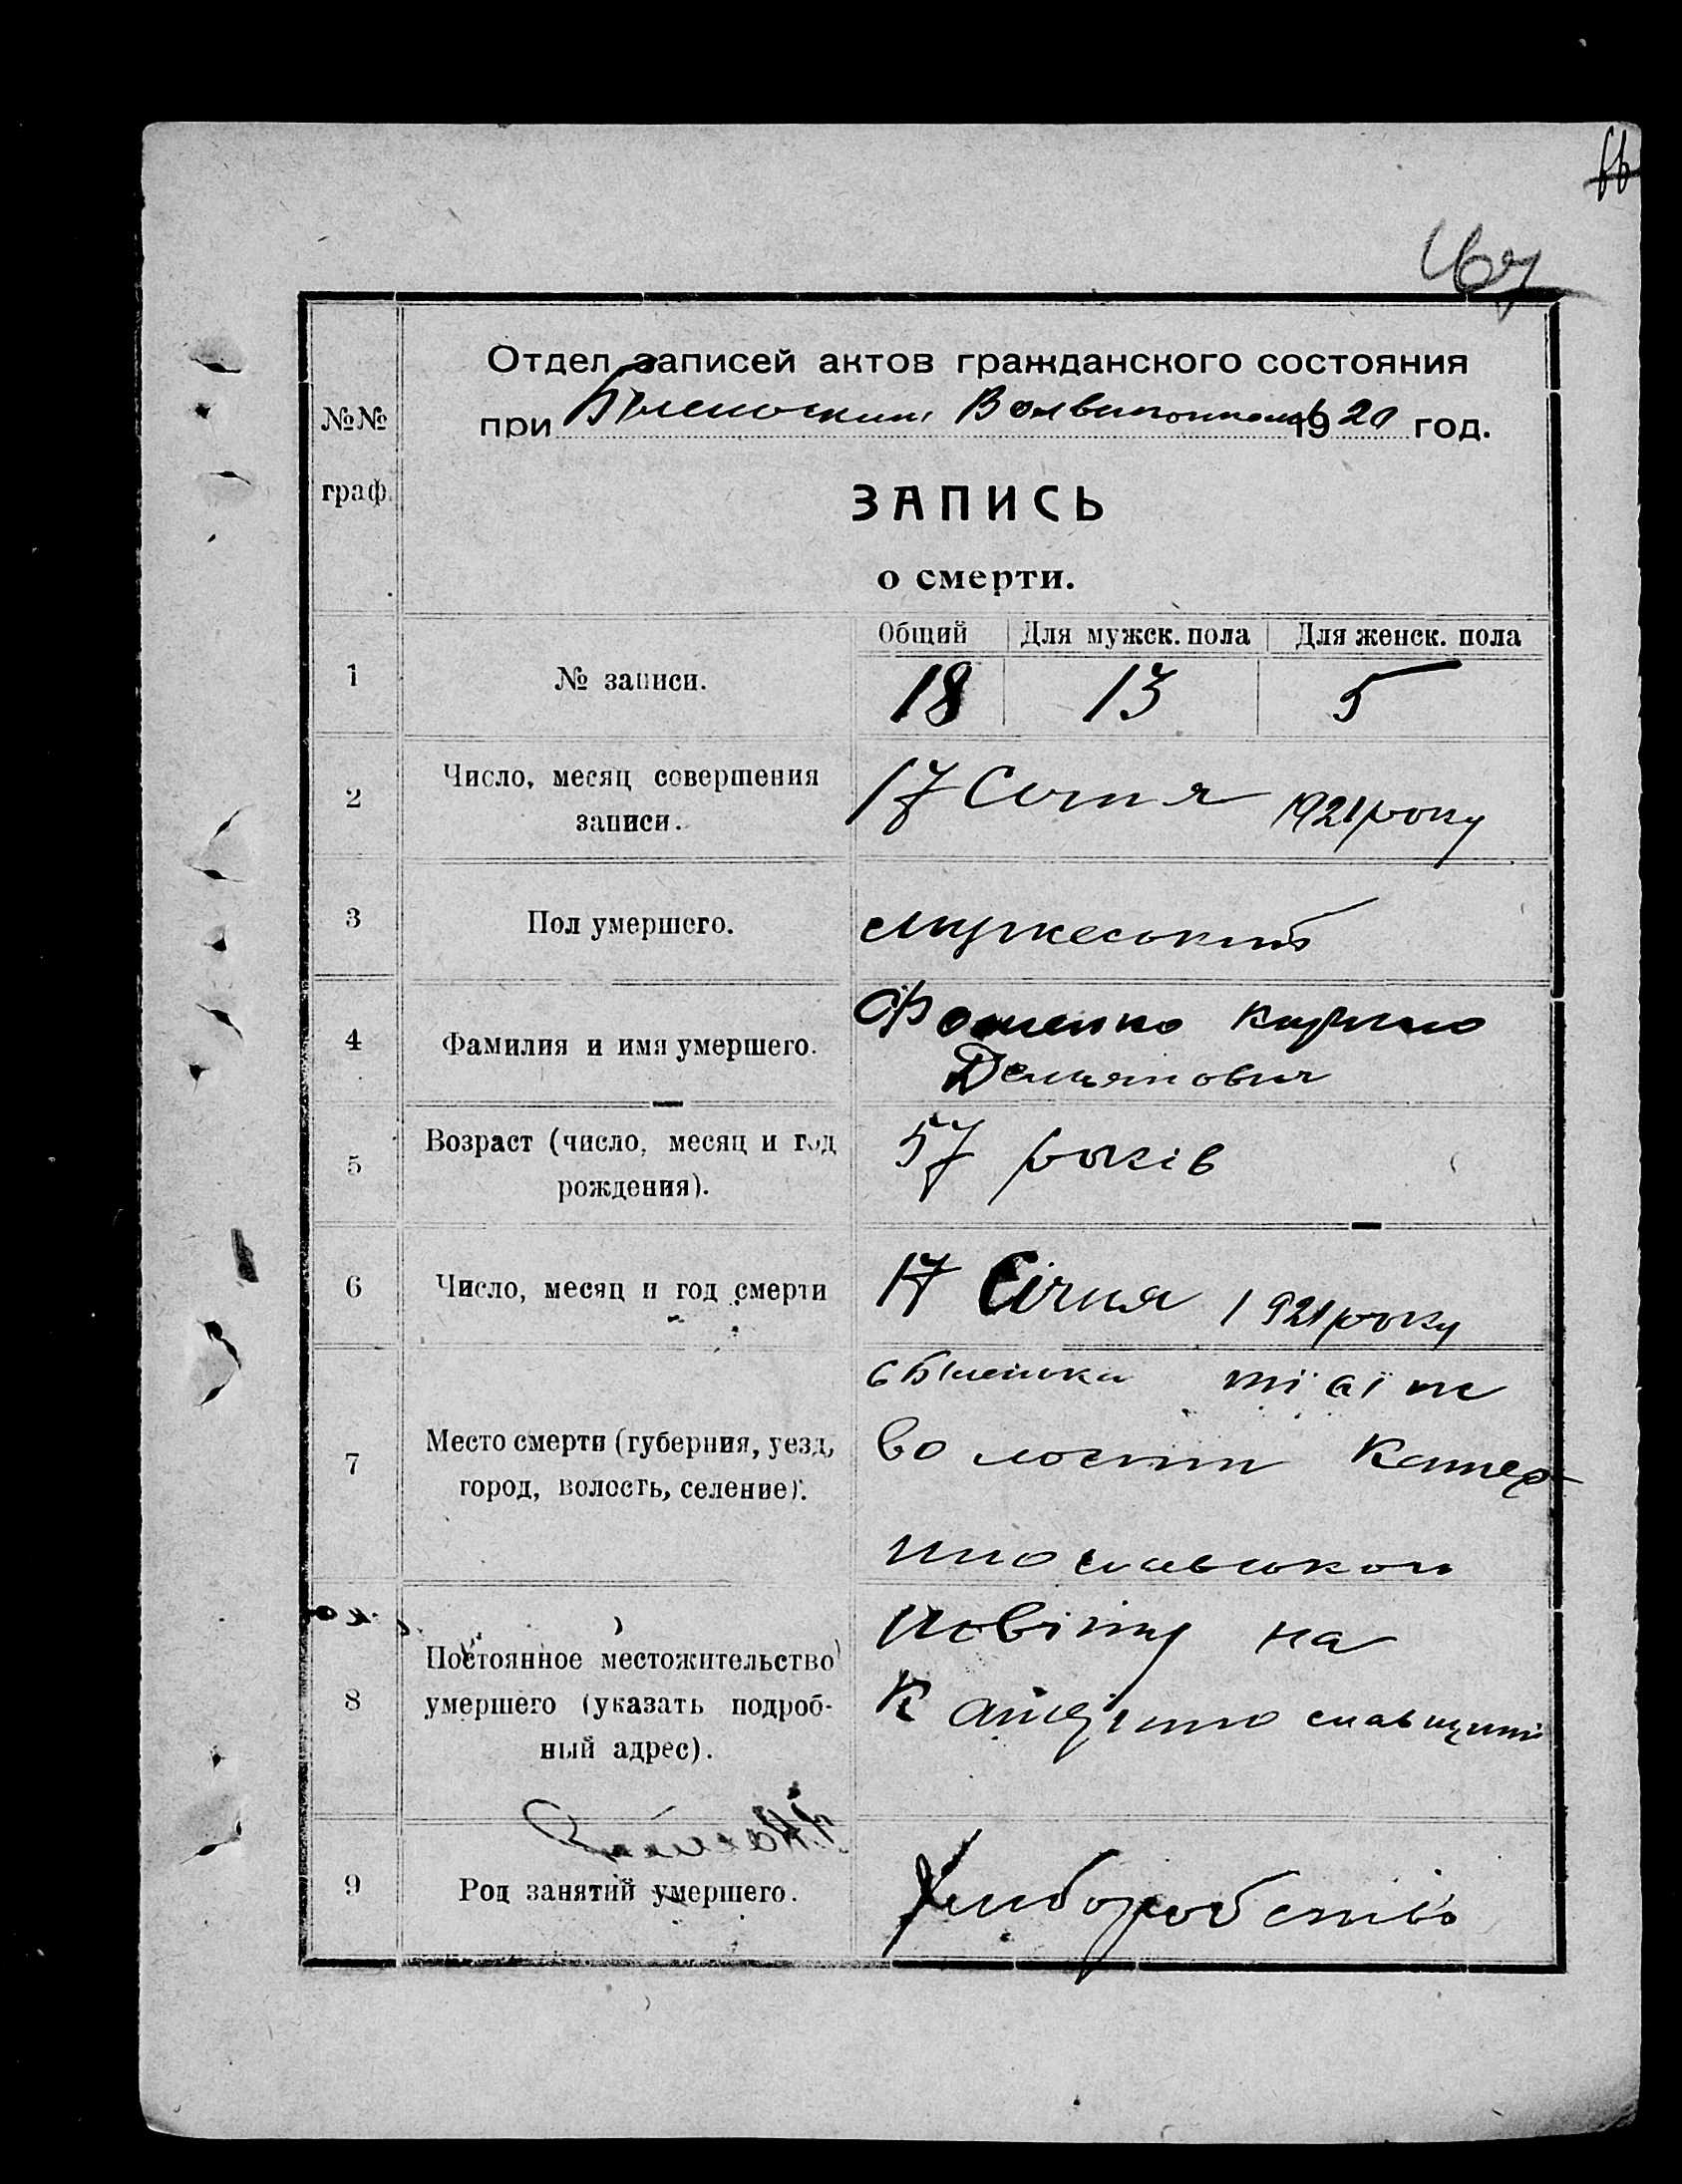 167
Отдел записей актов гражданского состояния
при 1920 год.
№№
граф.
ЗАПИСЬ
о смерти.
Общий Для мужск. пола Для женск. пола
1 № записи. 18 13 5
2 Число, месяц совершения
записи.
17 Січня 1921 року
3 Пол умершего. мужеський
4 Фамилия и имя умершего.
Фоменко Кирило
Демьянович
5 Возраст (число, месяц и год
рождения).
57 років
6 Число, месяц и год смерти 17 Січня 1921 року
7 Место смерти (губерния, уезд,
город, волость, селение).
с тіаїж
волости Катер-
инославською
8 Постоянное местожительство
умершего (указать подроб-
ный адрес).
повіту на
Катерінославщині
9 Род занятий умершего. Хлиборобство